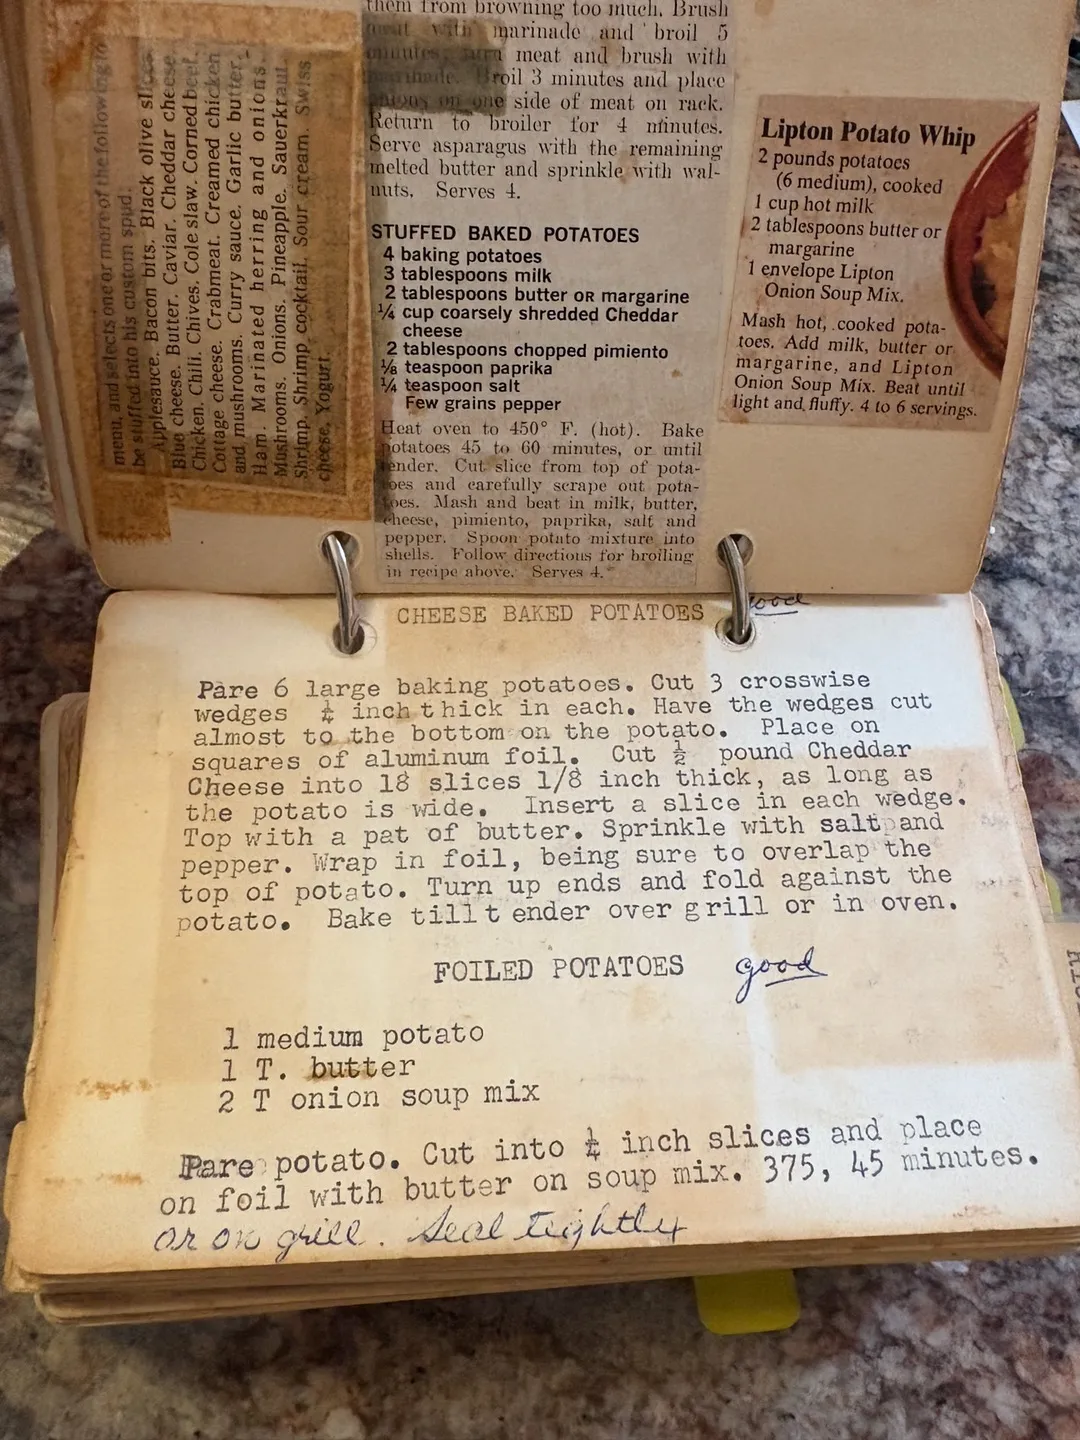 menu, and selects one or more of the following to
be stuffed into his custom spud.
Applesauce. Bacon bits. Black olive slices.
Blue cheese. Butter. Caviar. Cheddar cheese.
Chicken. Chili. Chives. Cole slaw. Corned beef.
Cottage cheese. Crabmeat. Creamed chicken
and mushrooms. Curry sauce. Garlic butter.
Ham. Marinated herring and onions.
Mushrooms. Onions. Pineapple. Sauerkraut.
Shrimp. Shrimp cocktail. Sour cream. Swiss
cheese, Yogurt.
them from browning too much. Brush
meat with marinade and broil 5
minutes, turn meat and brush with
marinade. Broil 3 minutes and place
onions on one side of meat on rack.
Return to broiler for 4 minutes.
Serve asparagus with the remaining
melted butter and sprinkle with wal-
nuts. Serves 4.
STUFFED BAKED POTATOES
4 baking potatoes
3 tablespoons milk
2 tablespoons butter OR margarine
¼ cup coarsely shredded Cheddar
cheese
2 tablespoons chopped pimiento
⅛ teaspoon paprika
¼ teaspoon salt
Few grains pepper
Heat oven to 450° F. (hot). Bake
potatoes 45 to 60 minutes, or until
tender. Cut slice from top of pota-
toes and carefully scrape out pota-
toes. Mash and beat in milk, butter,
cheese, pimiento, paprika, salt and
pepper. Spoon potato mixture into
shells. Follow directions for broiling
in recipe above. Serves 4.
Lipton Potato Whip
2 pounds potatoes
(6 medium), cooked
1 cup hot milk
2 tablespoons butter or
margarine
1 envelope Lipton
Onion Soup Mix.
Mash hot, cooked pota-
toes. Add milk, butter or
margarine, and Lipton
Onion Soup Mix. Beat until
light and fluffy. 4 to 6 servings.
CHEESE BAKED POTATOES good
Pare 6 large baking potatoes. Cut 3 crosswise
wedges ¼ inch thick in each. Have the wedges cut
almost to the bottom on the potato. Place on
squares of aluminum foil. Cut ½ pound Cheddar
Cheese into 18 slices 1/8 inch thick, as long as
the potato is wide. Insert a slice in each wedge.
Top with a pat of butter. Sprinkle with salt and
pepper. Wrap in foil, being sure to overlap the
top of potato. Turn up ends and fold against the
potato. Bake till tender over grill or in oven.
FOILED POTATOES good
1 medium potato
1 T. butter
2 T onion soup mix
Pare potato. Cut into ¼ inch slices and place
on foil with butter on soup mix. 375, 45 minutes.
or on grill. Seal tightly